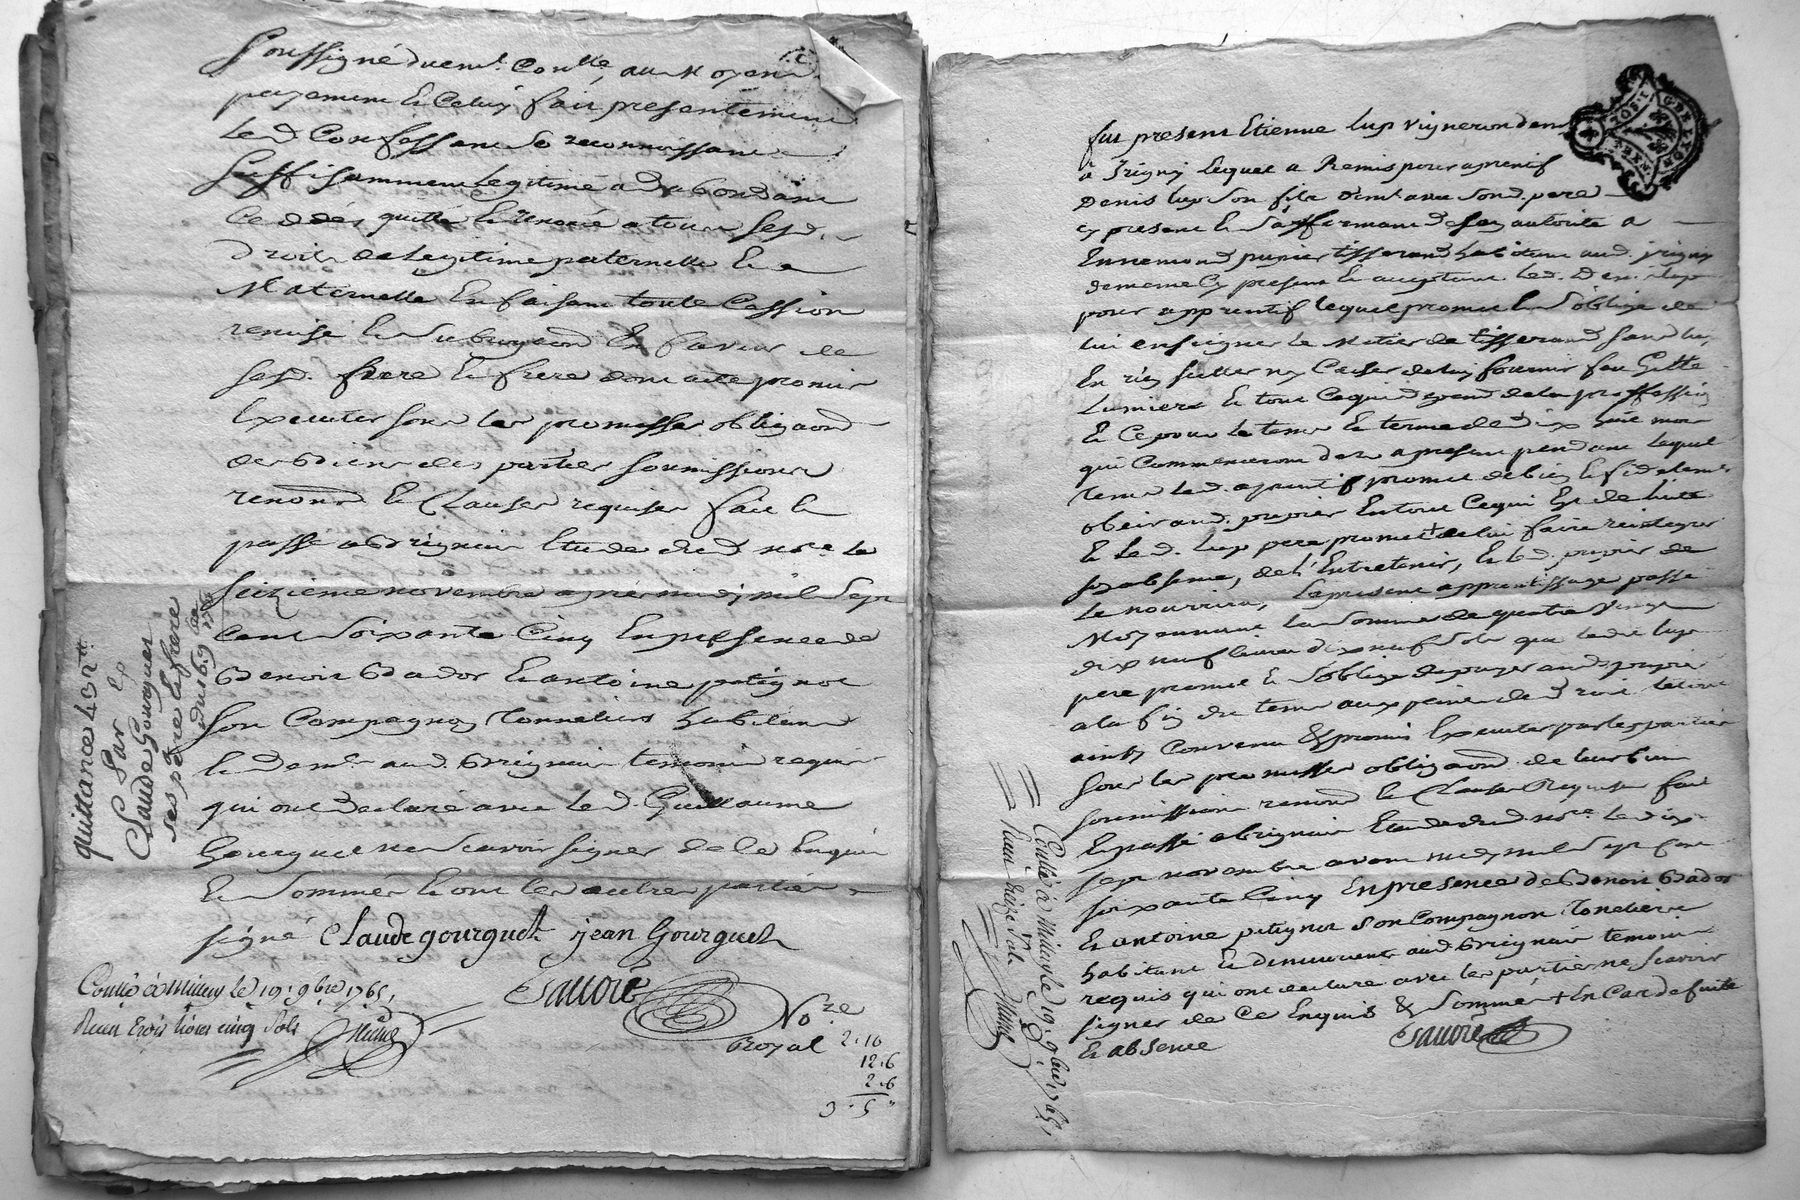 soussigné deml. Conlle, au Moyen
payement et Celuy fait presentement
led Confessant se reconnoissant
suffisamment legitimé ad abondant
Cedder quitte et renoncé a tous sesd.
Droits de legitime paternelle et
Maternelle En faisant toute Cession
remise et subrogaond En faveur de
sesd. pere et frere dont acte promis
Executer sous les promesses obligaond
des biens des parties soumissions
renond et Clauses requises fait et
passé a Brignais Etude dud no.re le
seizieme novembre apres midy mil sept
cent soixante Cinq En presence de
Benoit Bador et antoine patignot
son Compagnon Tonnelier habitans
et Dem.t aud. Brignais temoins requis
qui ont declaré avec led. Guillaume
Gourguet ne scavoir signer de ce Enquis
et sommés et ont les autres parties
signé Claude gourguet jean Gourguet
Sauore
No.re
Royal
Conllé à Millery Le 19. 9bre 1765,
Receu trois livres cinq sols
2.10
12.6
2.6
3.5"
quittance
Par
Claude Gourguet
ses pere et frere
du 16. 9bre
G DE LYON
fut present Etienne lup vigneron dem.t
a Irigny lequel a Remis pour aprentif
Denis lup son fils dem.t avec sond. pere
cy present et s'affermant de son autorité a
Ennemond papier tisserand habitant aud. jrigny
de meme Cy present et acceptant led. Denis lup
pour apprentif lequel promet et s'oblige de
lui enseigner le Metier de tisserand sans luy
En rien Celler ny Cacher de luy fournir feu Gitte
Lumiere et tout Cequi depend de la proffession
et Ce pour le tems et terme de dix huit mois
qui Commenceront des a present pendant lequel
tems led. aprentif promet de bien et fidelement
obeir aud. papier En tout Cequi Est de licite
et led. lup pere promet + de lui faire reintegrer
ses absences, de l'Entretenir, et led. papier de
le nourrir, le present apprentissage passé
Moyennant la somme de quatre vingt
dix neuf livres dix neuf sols que led. lup
pere promet et s'oblige de payer aud. papier
a la fin du tems aux peines de Droit
ainsy Convenu Et promis Executer par les parties
sous les promesses obligaond. de leurs biens
soumissions renond et Clauses Requises fait
et passé a Brignais Etude dud no.re le dix
sept novembre avant midy mil sept cent
soixante Cinq En presence de Benoit Bador
et antoine patignot son Compagnon tonelier
habitans et demeurants aud. Brignais temoins
requis qui ont declaré avec les parties ne scavoir
signer de Ce Enquis & sommés + En Cas de fuite
et absence
Sauore
Conllé à Millery le 19. 9bre 1765,
Receu treize sols